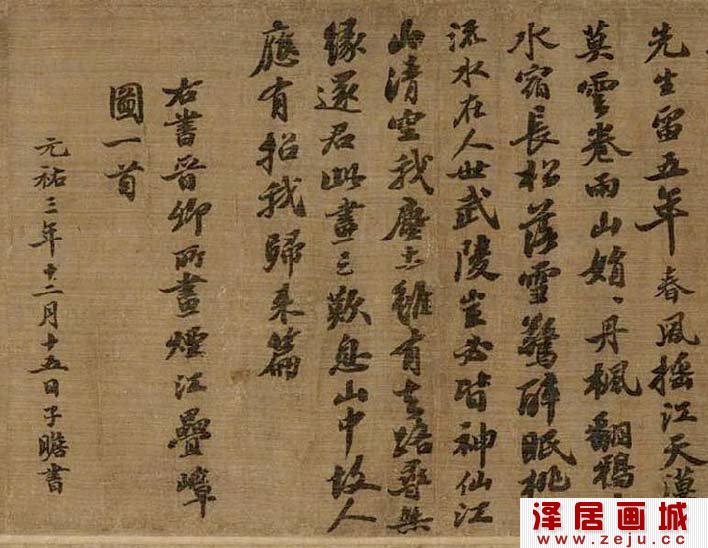 先生留五年春風摇江天漠
莫雲卷雨山娟、丹楓翻鴉
水宿長松落雪驚醉眠桃
流水在人世武陵豈必皆神仙江
山清空我塵土雖有去路尋無
緣還君此畫三歎息山中故人
應有招我歸来篇
右書晋卿所畫煙江疊嶂
圖一首
元祐三年十二月十五日子瞻書
泽居画城
www.zeju.cc